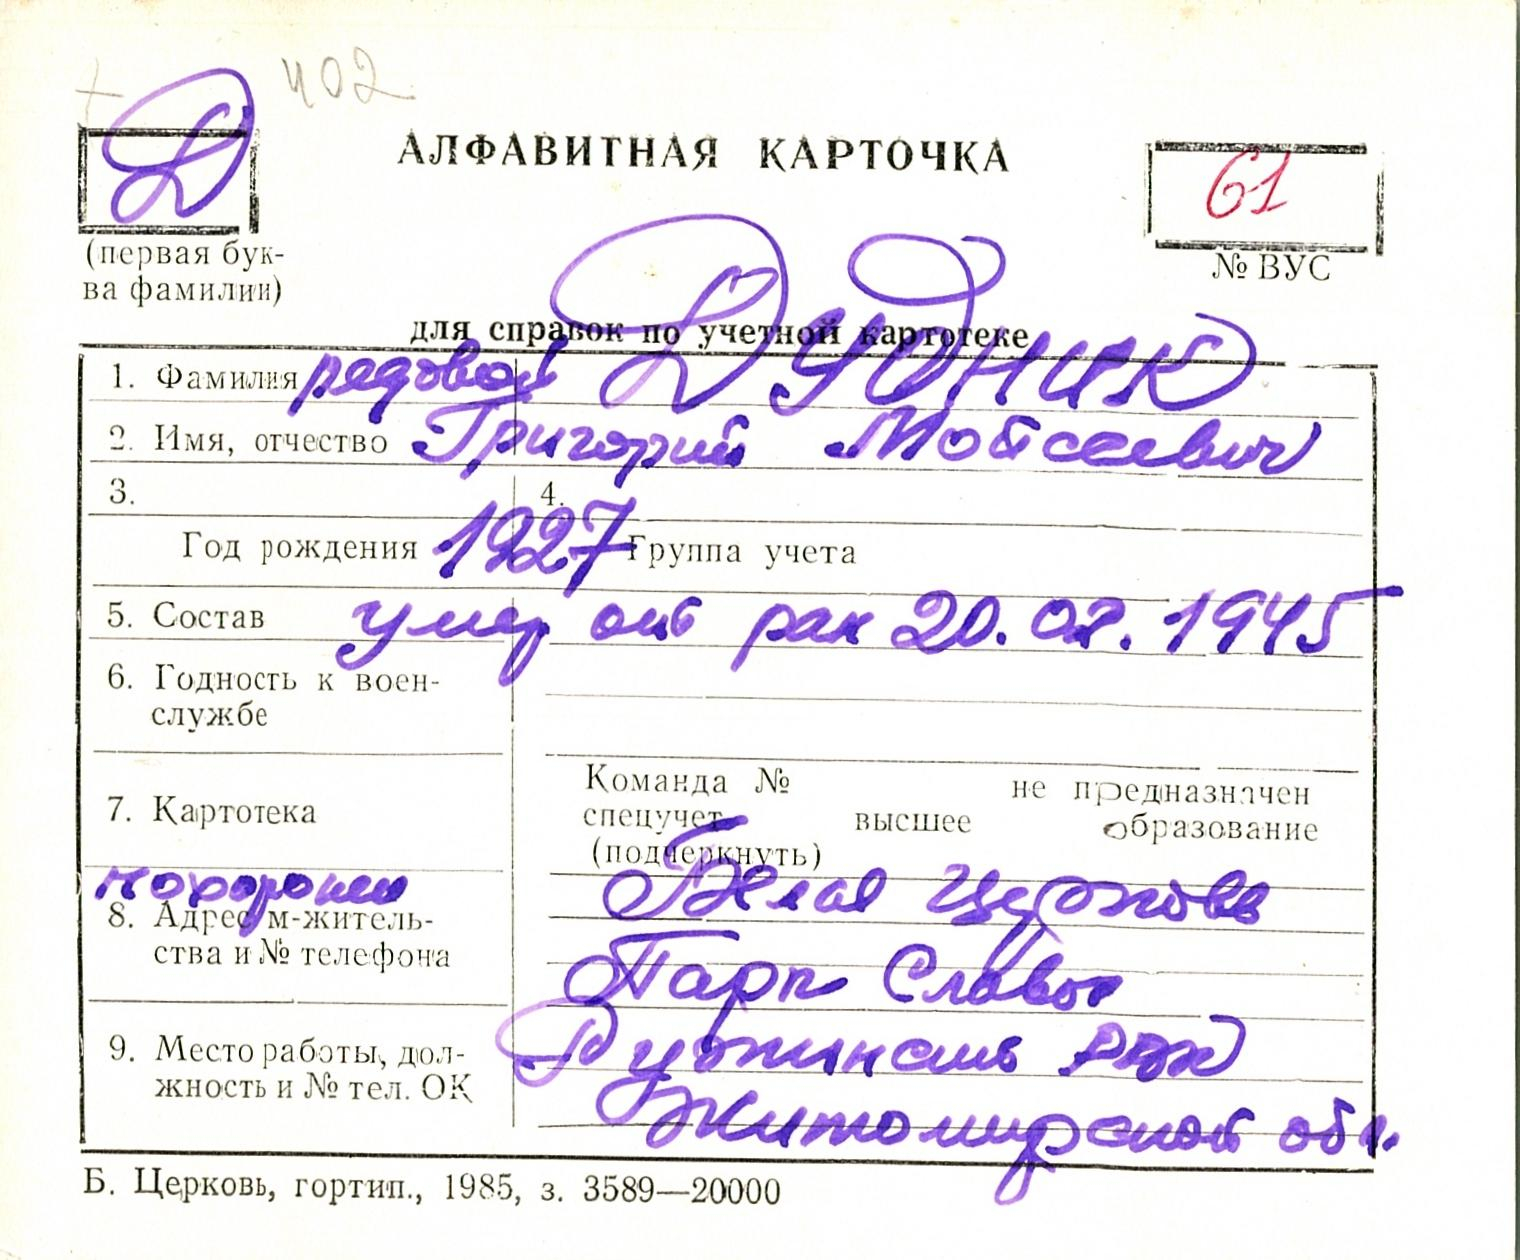 402
Д
АЛФАВИТНАЯ КАРТОЧКА
61
(первая бук-
ва фамилии)
№ ВУС
для справок по учетной картотеке
1. Фамилия рядовой ДУДНИК
2. Имя, отчество Григорий Мойсеевич
3.
4.
Год рождения 1927 Группа учета
5. Состав умер от ран 20.02.1945
6. Годность к воен-
службе
Команда № не предназначен
7. Картотека
спецучет высшее образование
(подчеркнуть)
похоронен Белая Церковь
8. Адрес м-житель-
ства и № телефона Парк Славы
9. Место работы, дол-
жность и № тел. ОК
Ружинский р-он
Житомирской обл.
Б. Церковь, гортип., 1985, з. 3589—20000